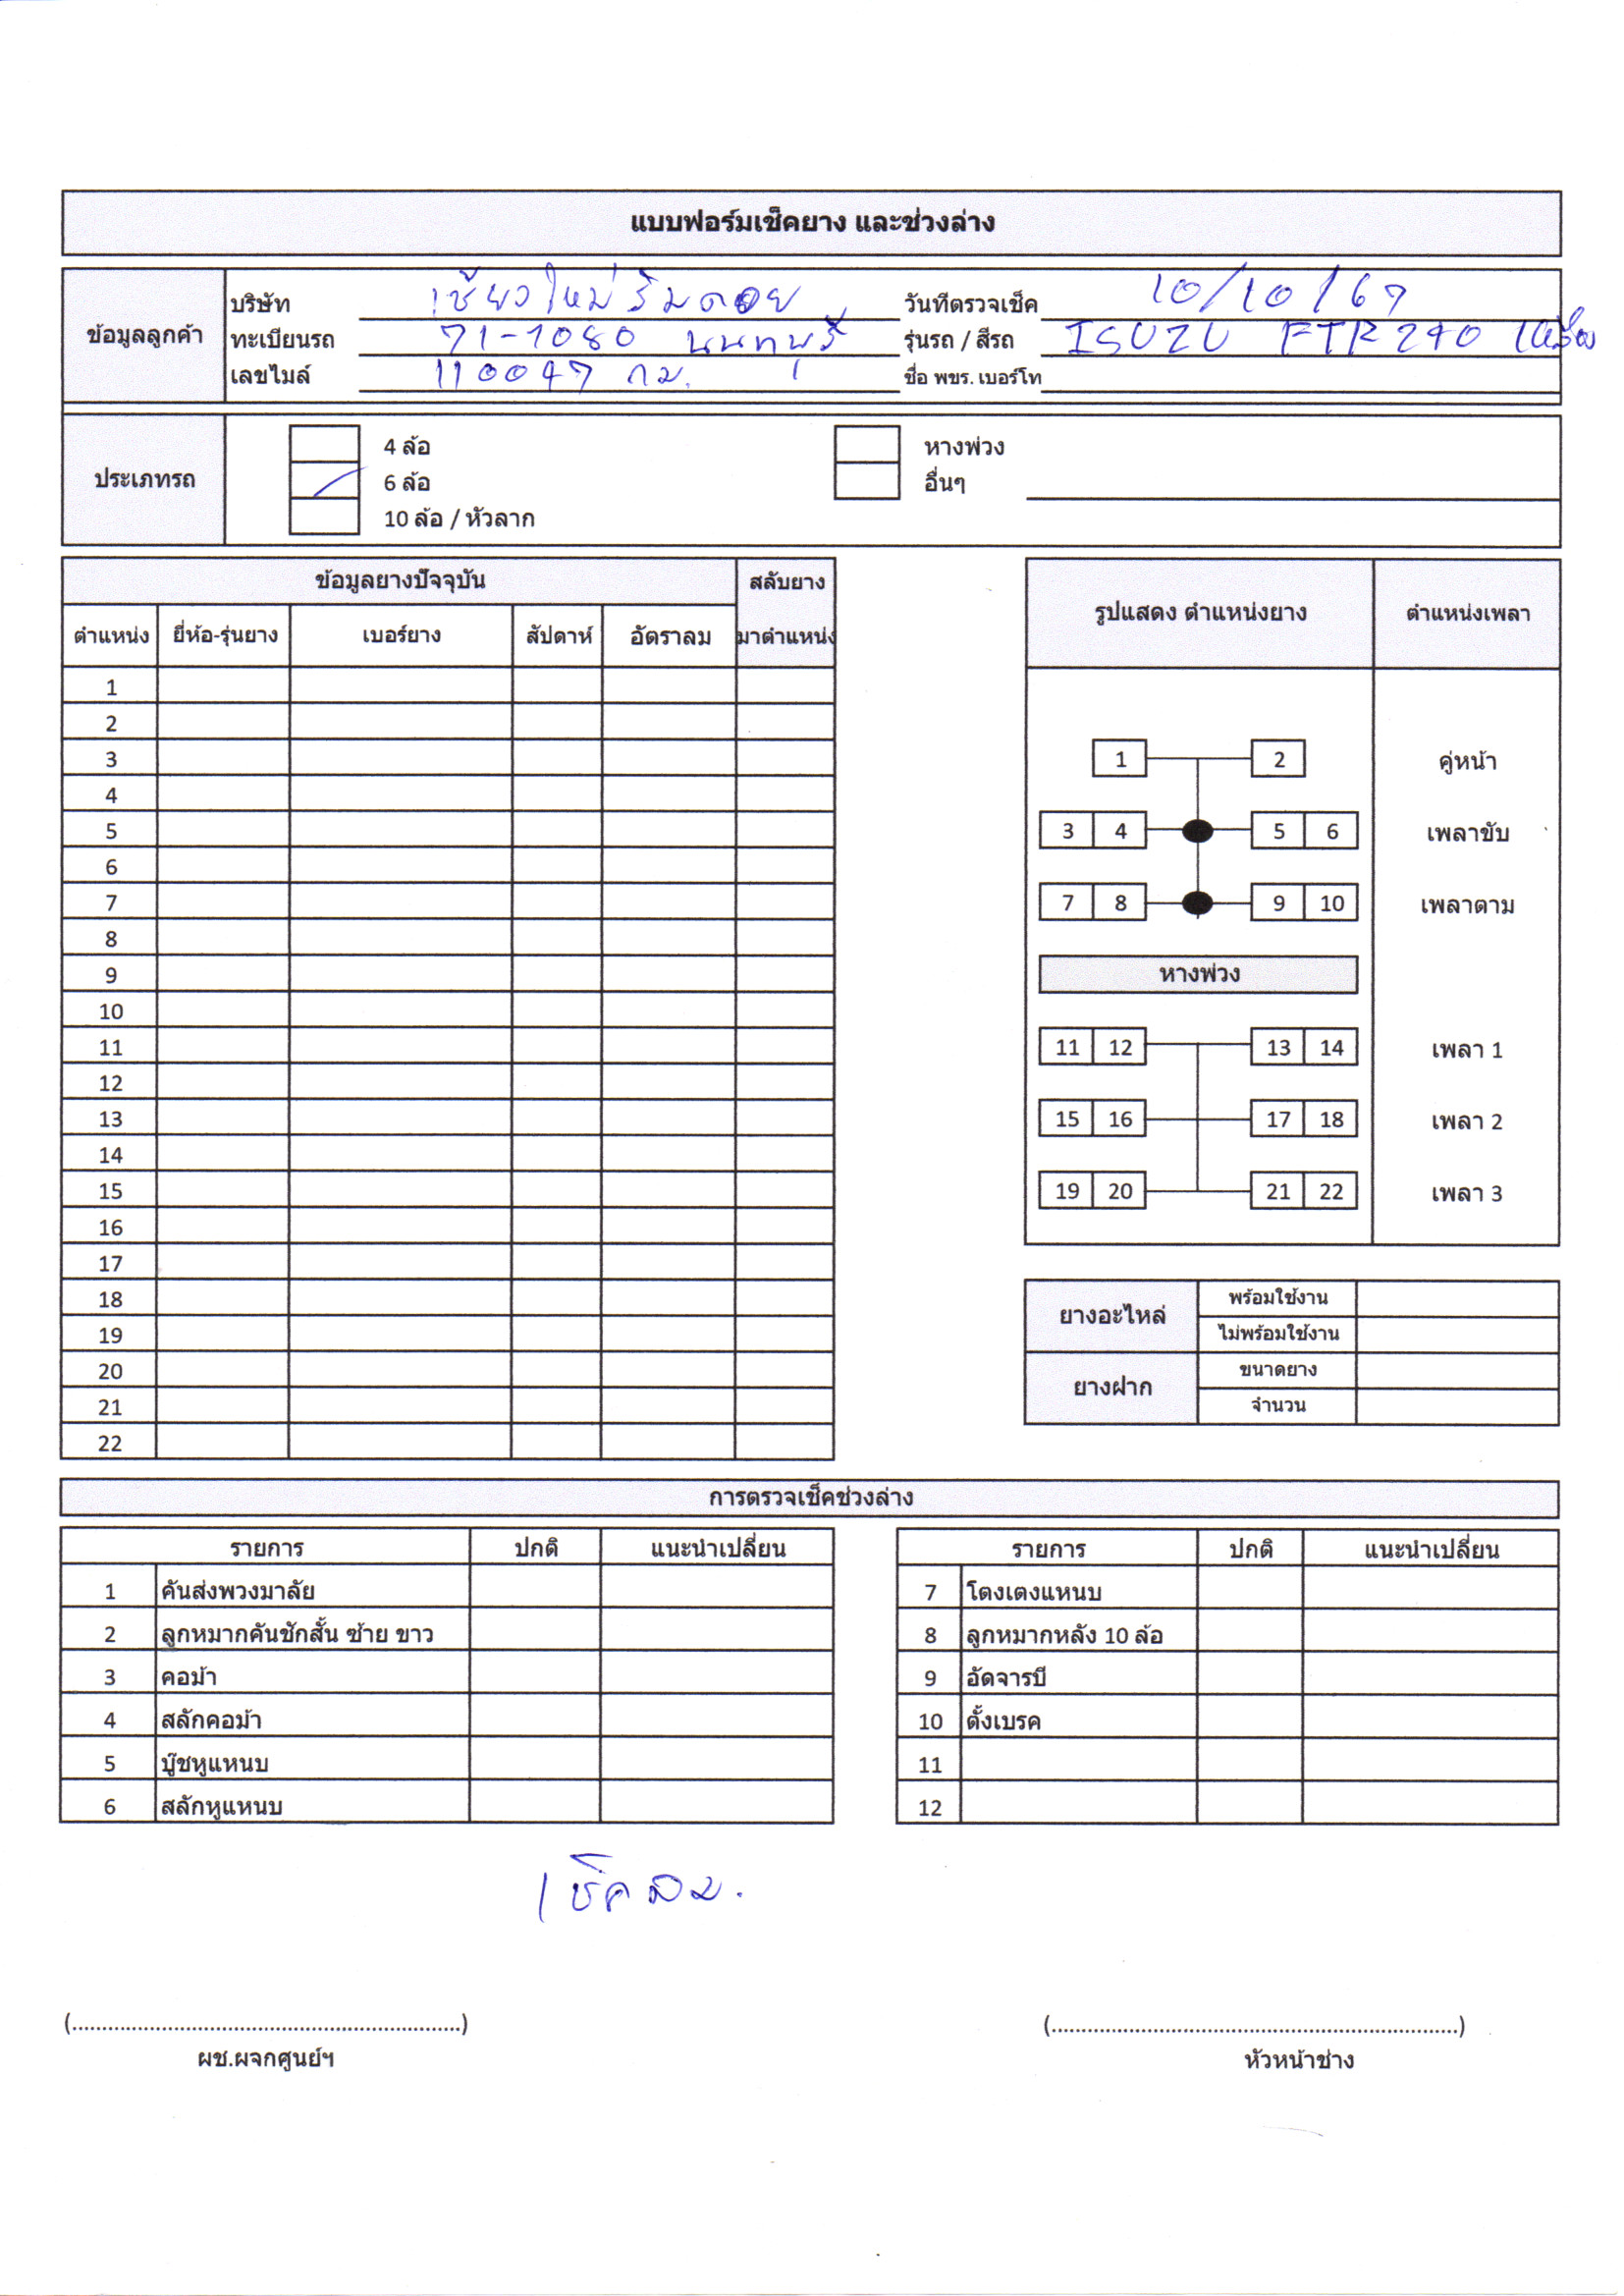 แบบฟอร์มเช็คยาง และช่วงล่าง
ข้อมูลลูกค้า
บริษัท เชียงใหม่ริมดอย วันที่ตรวจเช็ค 10/10/67
ทะเบียนรถ 71-1080 นนทบุรี รุ่นรถ / สีรถ ISUZU FTR 240
เลขไมล์ 110047 กม. ชื่อ พขร. เบอร์โท
ประเภทรถ
4 ล้อ หางพ่วง
6 ล้อ อื่นๆ
10 ล้อ / หัวลาก
ข้อมูลยางปัจจุบัน สลับยาง
ตำแหน่ง ยี่ห้อ-รุ่นยาง เบอร์ยาง สัปดาห์ อัตราลม มาตำแหน่ง
1
2
3
4
5
6
7
8
9
10
11
12
13
14
15
16
17
18
19
20
21
22
รูปแสดง ตำแหน่งยาง ตำแหน่งเพลา
1 2 คู่หน้า
3 4 5 6 เพลาขับ
7 8 9 10 เพลาตาม
หางพ่วง
11 12 13 14 เพลา 1
15 16 17 18 เพลา 2
19 20 21 22 เพลา 3
ยางอะไหล่ พร้อมใช้งาน
ไม่พร้อมใช้งาน
ยางฝาก ขนาดยาง
จำนวน
การตรวจเช็คช่วงล่าง
รายการ ปกติ แนะนำเปลี่ยน
1 คันส่งพวงมาลัย
2 ลูกหมากคันชักสั้น ซ้าย ขาว
3 คอม้า
4 สลักคอม้า
5 บู๊ชหูแหนบ
6 สลักหูแหนบ
รายการ ปกติ แนะนำเปลี่ยน
7 โตงเตงแหนบ
8 ลูกหมากหลัง 10 ล้อ
9 อัดจารบี
10 ตั้งเบรค
11
12
เช็คลม.
(.................................................................)
ผช.ผจกศูนย์ฯ
(.....................................................................)
หัวหน้าช่าง